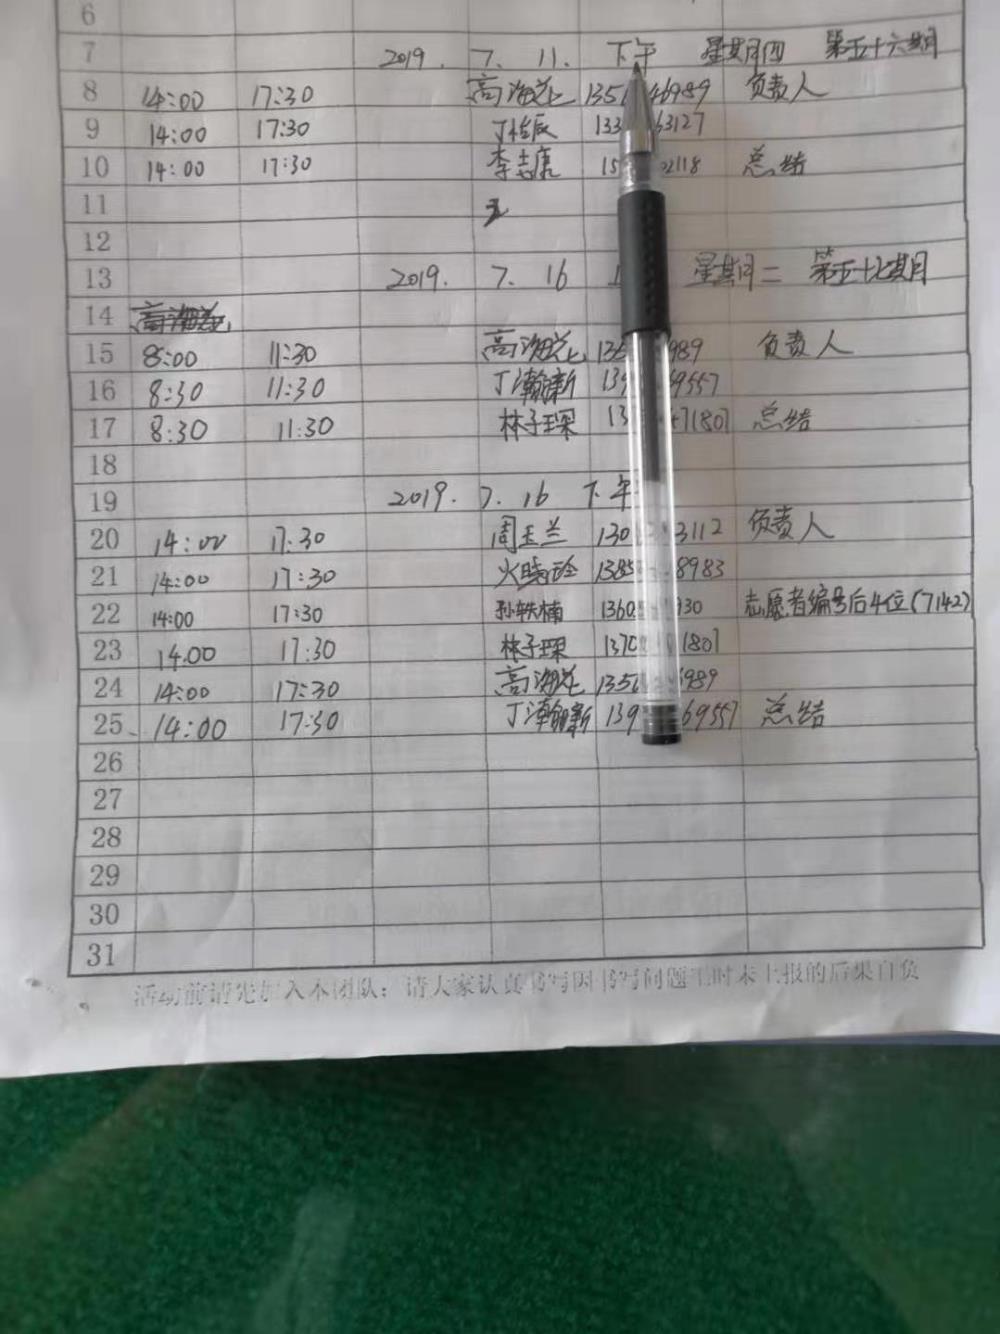 6
7 2019. 7. 11. 下午 星期四 第五十六期
8 14:00 17:30 高海兰 135 46989 负责人
9 14:00 17:30 丁 辰 133 63127
10 14:00 17:30 李志康 15 02118 总结
11
12
13 2019. 7. 16 星期二 第五十七期
14 高海兰
15 8:00 11:30 高海兰 135 989 负责人
16 8:30 11:30 丁瀚新 139 69557
17 8:30 11:30 林子琛 13 471807 总结
18
19 2019. 7. 16 下午
20 14:00 17:30 周玉兰 130 3112 负责人
21 14:00 17:30 火晓 1385 8983
22 14:00 17:30 孙轶楠 1360 930 志愿者编号后4位(7142)
23 14.00 17:30 林子琛 1370 1807
24 14:00 17:30 高海兰 1356 989
25、 14:00 17:30 丁瀚新 139 69557 总结
26
27
28
29
30
31
活动前请先加入本团队；请大家认真书写因书写问题工时未上报的后果自负